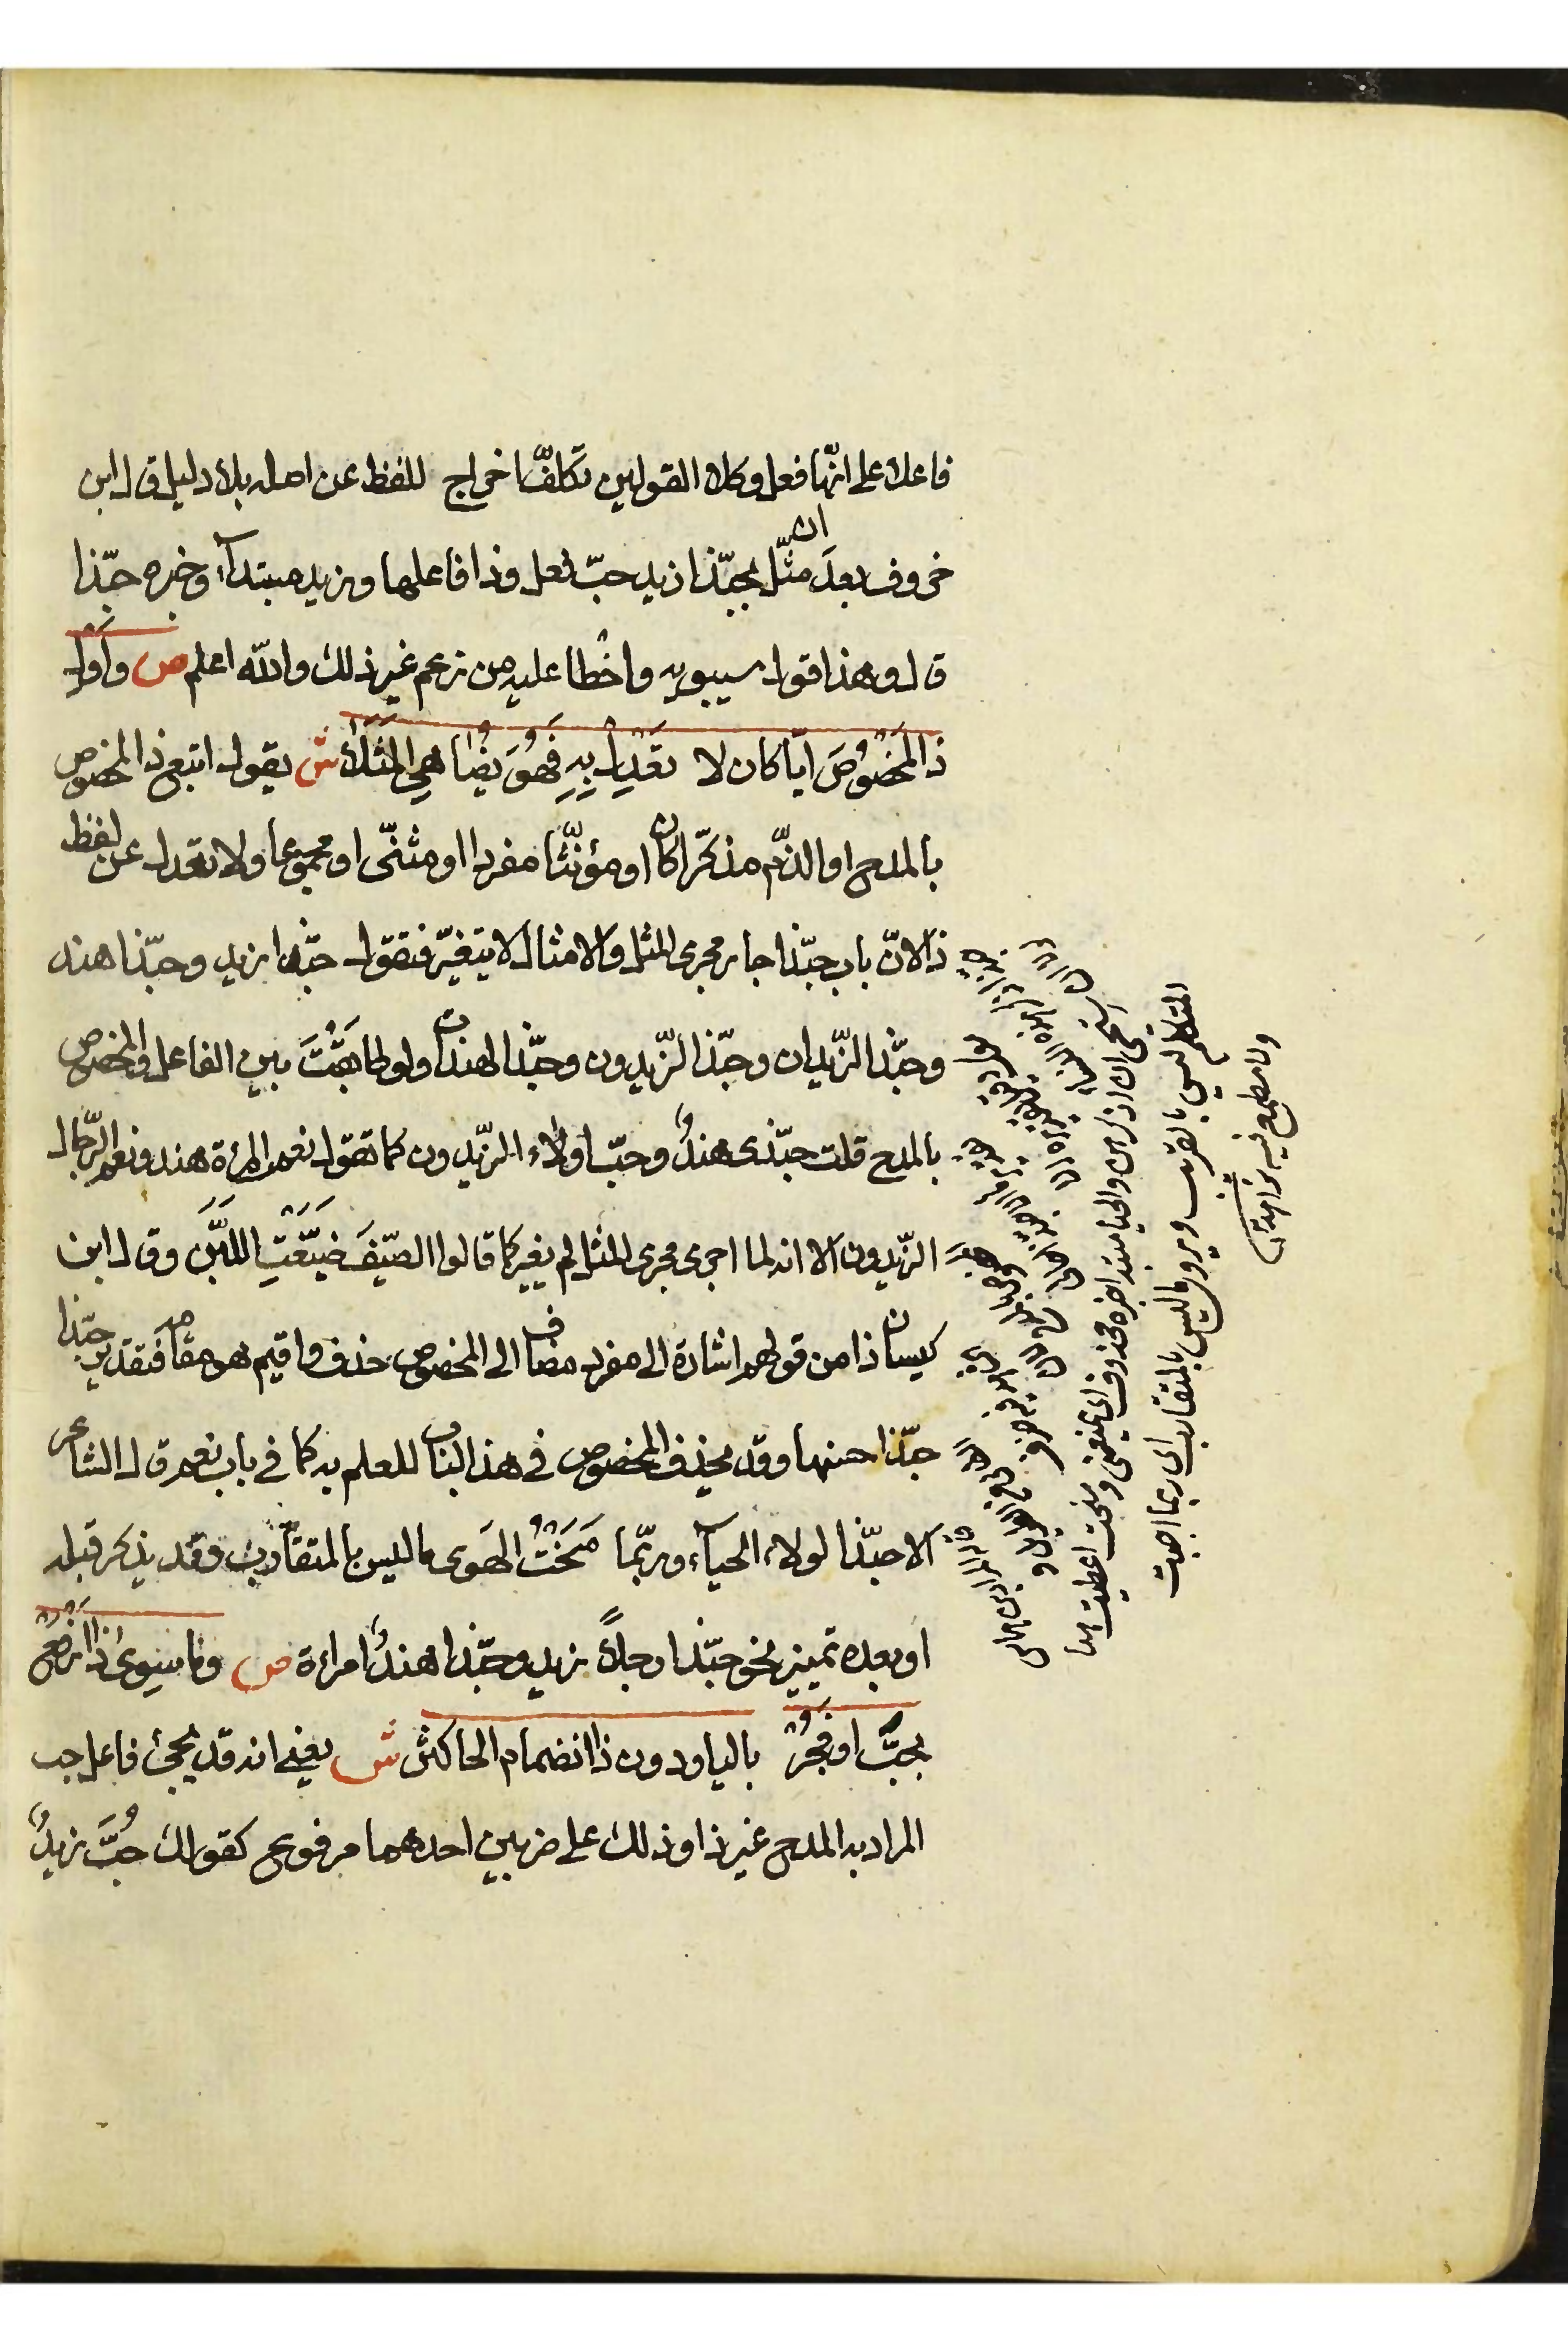 فاعلا على انّها فعل وكلا القولين تكلّف اخراج للفظ عن اصله بلا دليل قال ابن
خروف بعد ان مثّل بحبّذا زيد حبّ فعل وذا فاعلها وزيد مبتدآ وخبره حبّذا
قال وهذا قول سيبويه واخطا عليه من زعم غير ذلك والله اعلم ص وَأَوْلِ
ذَا المَخْصُوصَ ايّا كان لا تَعْدِلْ بِذا فَهُوَ يُضَاهِي المَثَلَا ش يقول اتبع ذا المخصوص
بالمدح او الذّم مذكّرا كان او مؤنّثا مفردا او مثنّى او مجموعا ولا تعدل عن لفظ
ذا لانّ باب حبّذا جار مجرى المثل والامثال لا يتغيّر فتقول حبّذا زيد وحبّذا هند
وحبّذا الزّيدان وحبّذا الزّيدون وحبّذا الهندات ولو طابَقْتَ بين الفاعل والمخصوص
بالمدح قلت حبّذى هندٌ وحبّ اولاء الزّيدون كما تقول نعم المرءة هند ونعم الرّجال
الزّيدون الا انه لما اجرى مجرى المثل لم يغير كما قالوا الصّيفَ ضَيَّعْتِ اللَّبَنَ وقال ابن
كيسان ذا من قولهم اشارة الى مفرد مضاف الى المخصوص حذف واقيم هو مقامه فتقدير حبّذا
حبّذا حسنها وقد يحذف المخصوص في هذا الباب للعلم به كما في باب نعم قال الشاعر
الا حبّذا لولا الحيآء وربّما مَنَحْتُ الهَوى ما ليس بالمتقارب وقد يذكر قبله
او بعده تمييز نحو حبّذا رجلاً زيد وحبّذا هندٌ امراءة ص وما سِوى ذَا ارْفَعْ
بِحَبَّ او فَجُرْ بالبا ودون ذا انضمام الحا كثر ش يعني انه قد يجئ فاعل حب
المراد به المدح غير ذا وذلك على ضربين احدهما مرفوع كقولك حُبَّ زيدٌ
استحيى ان اذكرهن والحيا مبتدا خبره محذوف اى يمنعنى ومنحت اعطيت
المتكلم ليس بالقريب ويروى ما ليس بالمتقارب اى ربما احببت
ولا مطمع فيه شواهد